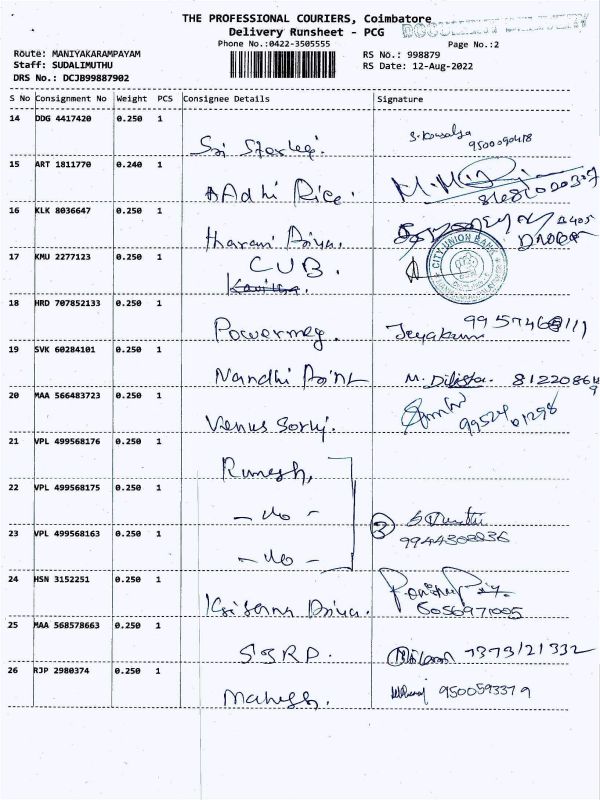 THE PROFESSIONAL COURIERS, Coimbatore
DOCUMENT DELIVERY
Delivery Runsheet - PCG
Phone No.:0422-3505555
Page No.:2
Route: MANIYAKARAMPAYAM
RS No.: 998879
Staff: SUDALIMUTHU
RS Date: 12-Aug-2022
DRS No.: DCJB99887902
S No Consignment No Weight PCS Consignee Details Signature
14 DDG 4417420 0.250 1
S. Kowsalya
15 ART 1811770 0.240 1
AAdhi Rice.
16 KLK 8036647 0.250 1
Harani Priya.
17 KMU 2277123 0.250 1
CUB.
CITY UNION BANK
18 HRD 707852133 0.250 1
Powermeg. Jeyakum
19 SVK 60284101 0.250 1
Nandhi Point M. 8122086449
20 MAA 566483723 0.250 1
Venus 99524 01298
21 VPL 499568176 0.250 1
Rumesh,
22 VPL 499568175 0.250 1
- do -
3
23 VPL 499568163 0.250 1
9944308836
- do -
24 HSN 3152251 0.250 1
Priya.
25 MAA 568578663 0.250 1
SSRP. 7373121332
26 RJP 2980374 0.250 1
9500593379
Mahesh.